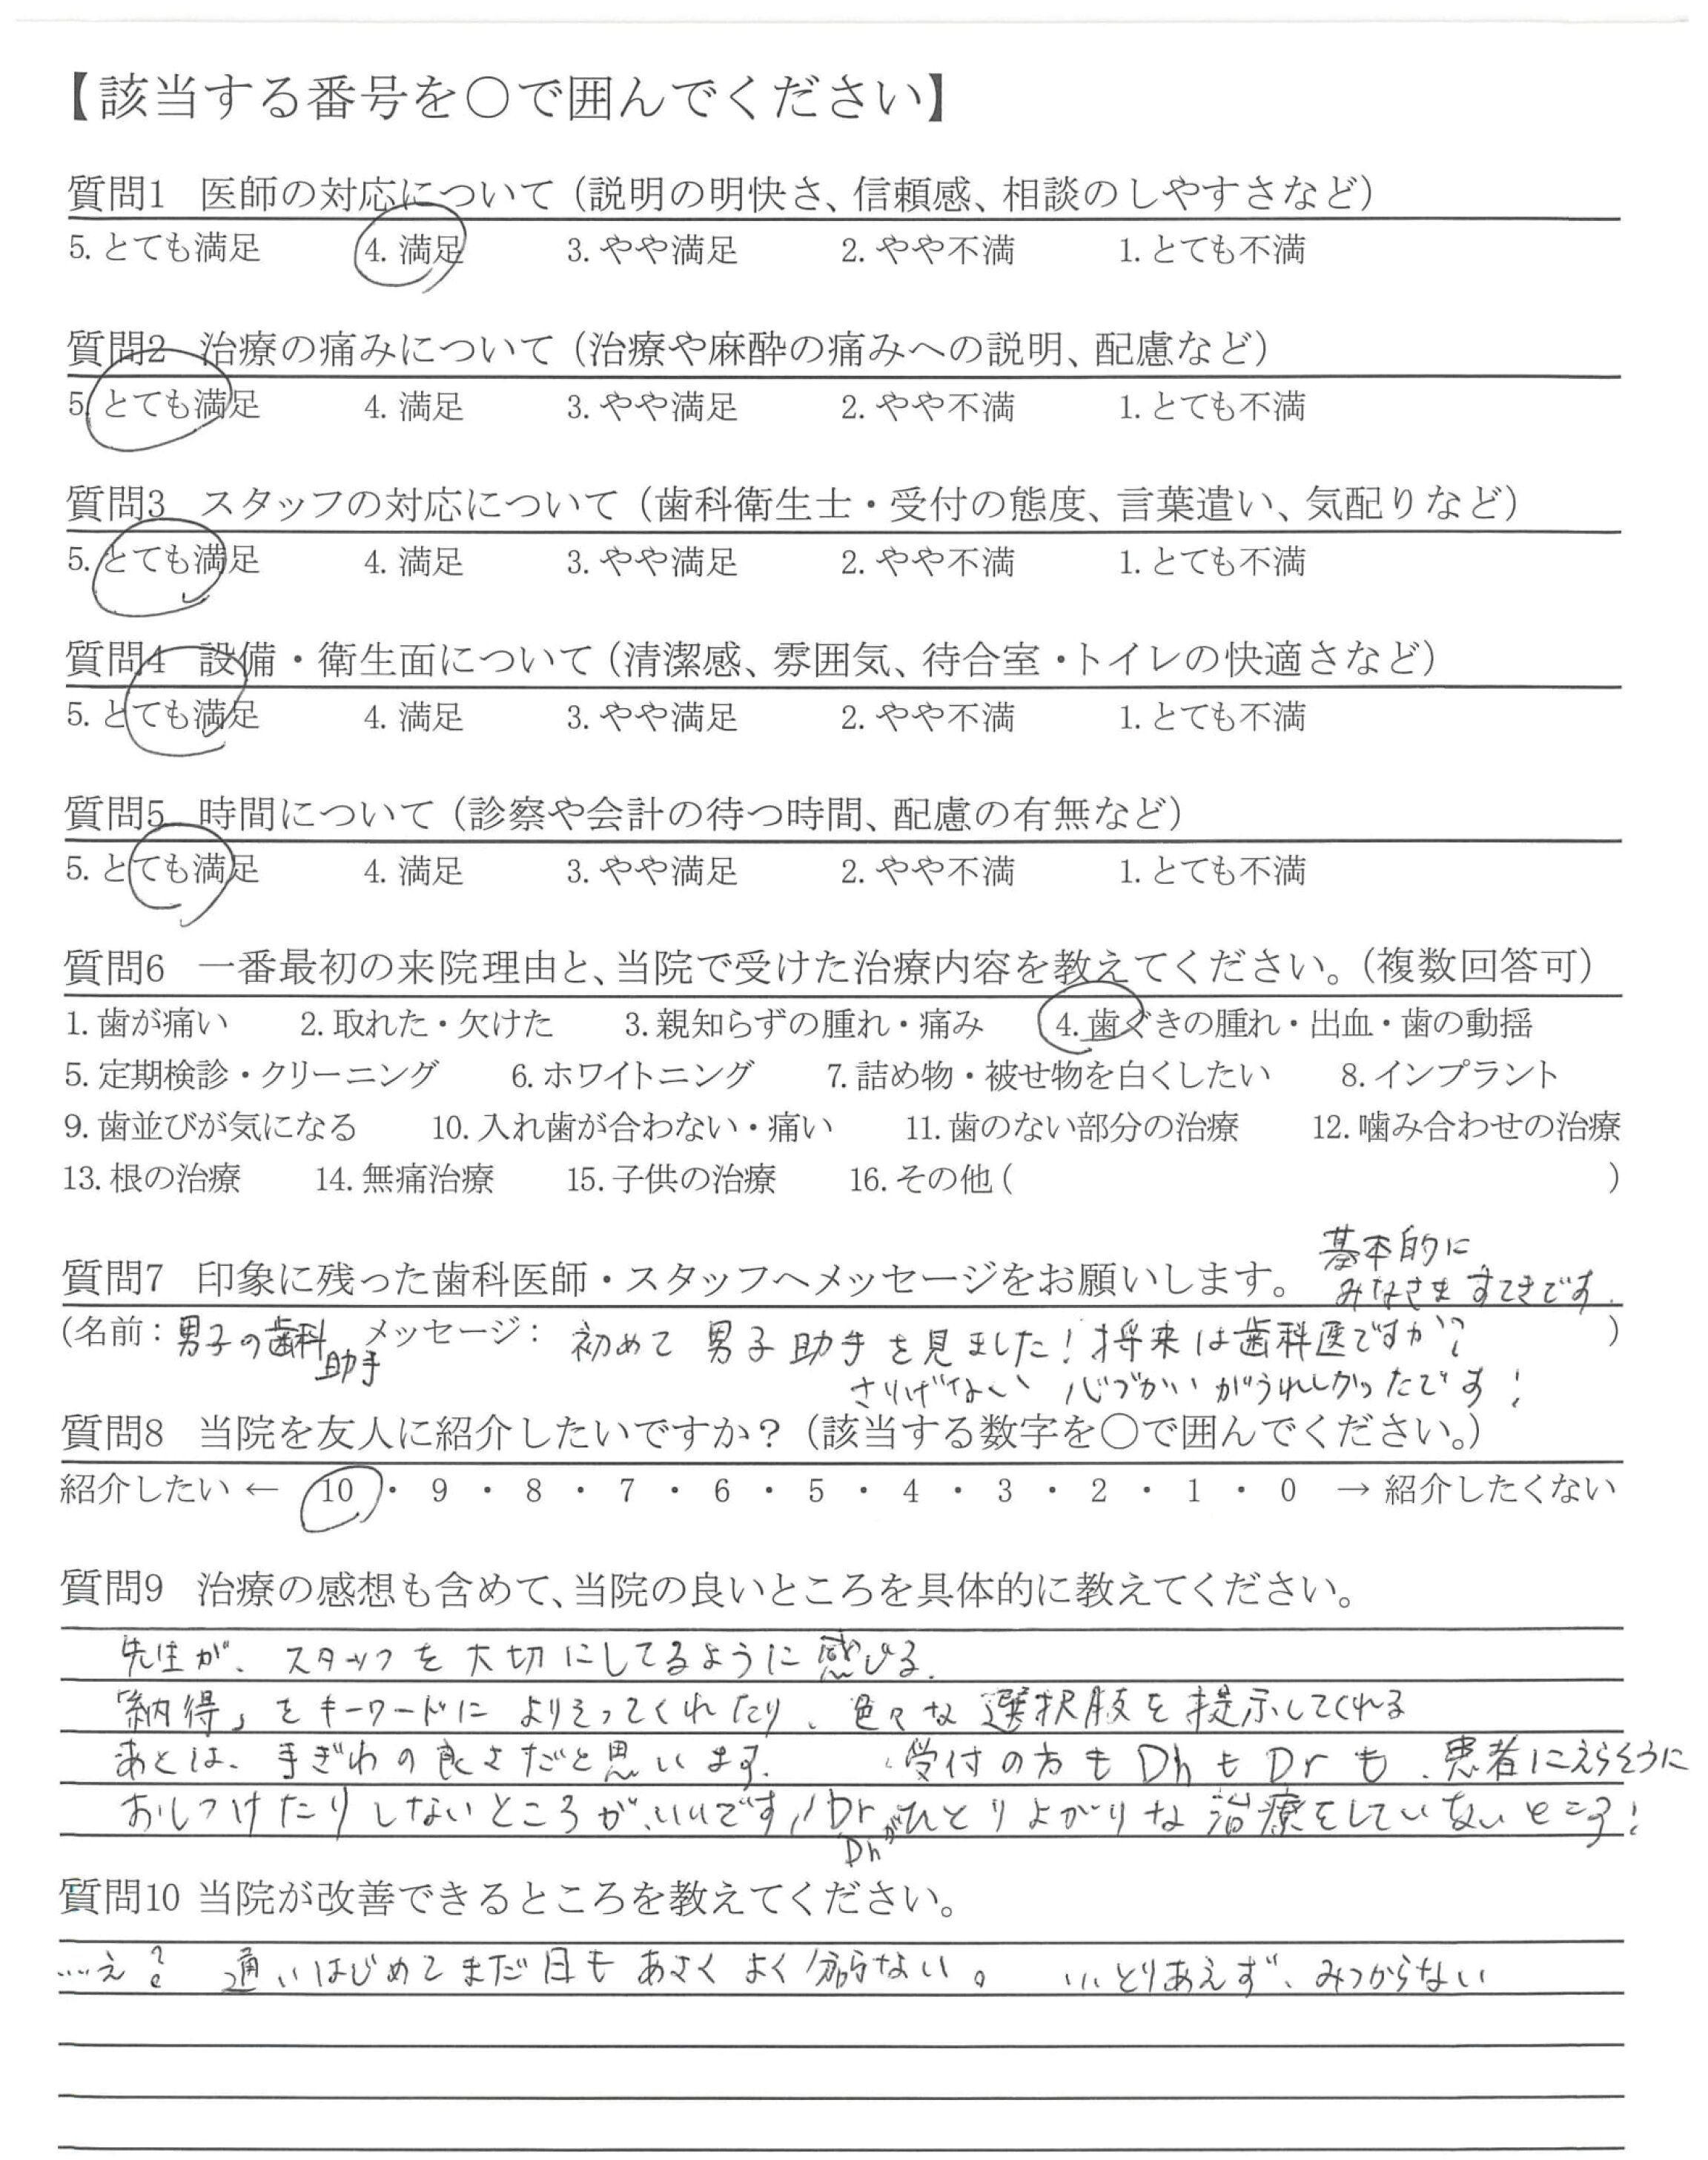 【該当する番号を○で囲んでください】
質問1 医師の対応について（説明の明快さ、信頼感、相談のしやすさなど）
5. とても満足 4. 満足 3. やや満足 2. やや不満 1. とても不満
質問2 治療の痛みについて（治療や麻酔の痛みへの説明、配慮など）
5. とても満足 4. 満足 3. やや満足 2. やや不満 1. とても不満
質問3 スタッフの対応について（歯科衛生士・受付の態度、言葉遣い、気配りなど）
5. とても満足 4. 満足 3. やや満足 2. やや不満 1. とても不満
質問4 設備・衛生面について（清潔感、雰囲気、待合室・トイレの快適さなど）
5. とても満足 4. 満足 3. やや満足 2. やや不満 1. とても不満
質問5 時間について（診察や会計の待つ時間、配慮の有無など）
5. とても満足 4. 満足 3. やや満足 2. やや不満 1. とても不満
質問6 一番最初の来院理由と、当院で受けた治療内容を教えてください。（複数回答可）
1. 歯が痛い 2. 取れた・欠けた 3. 親知らずの腫れ・痛み 4. 歯ぐきの腫れ・出血・歯の動揺
5. 定期検診・クリーニング 6. ホワイトニング 7. 詰め物・被せ物を白くしたい 8. インプラント
9. 歯並びが気になる 10. 入れ歯が合わない・痛い 11. 歯のない部分の治療 12. 噛み合わせの治療
13. 根の治療 14. 無痛治療 15. 子供の治療 16. その他（ ）
基本的に
質問7 印象に残った歯科医師・スタッフへメッセージをお願いします。 みなさますてきです.
（名前：男子の歯科 メッセージ： 初めて男子助手を見ました！将来は歯科医ですか？ ）
助手 さりげない心づかいがうれしかったです！
質問8 当院を友人に紹介したいですか？（該当する数字を○で囲んでください。）
紹介したい ← 10 ・ 9 ・ 8 ・ 7 ・ 6 ・ 5 ・ 4 ・ 3 ・ 2 ・ 1 ・ 0 → 紹介したくない
質問9 治療の感想も含めて、当院の良いところを具体的に教えてください。
先生が、スタッフを大切にしてるように感じる.
「納得」をキーワードによりそってくれたり、色々な選択肢を提示してくれる
あとは、手ぎわの良さだと思います. 受付の方もDhもDrも、患者にえらそうに
おしつけたりしないところが、いいです！Drがひとりよがりな治療をしていないところ！
Dh
質問10 当院が改善できるところを教えてください。
…え？ 通いはじめてまだ日もあさくよく分らない。 …とりあえず、みつからない